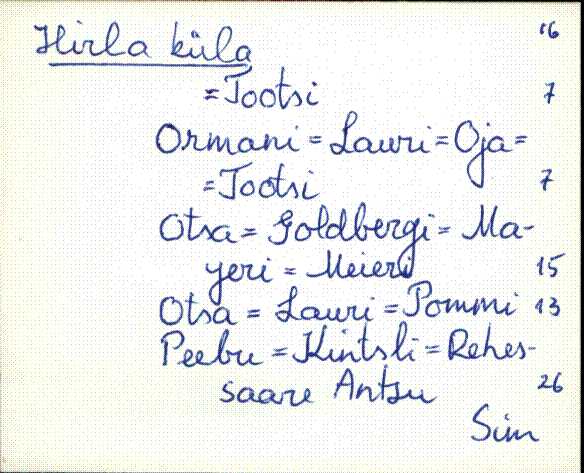 16
Hirla küla
=Tootsi 7
Ormani=Lauri=Oja=
=Tootsi 7
Otsa=Goldbergi=Ma-
yeri=Meieri 15
Otsa=Lauri=Pommi 13
Peebu=Kintsli=Rehes-
saare Antsu 26
Sim